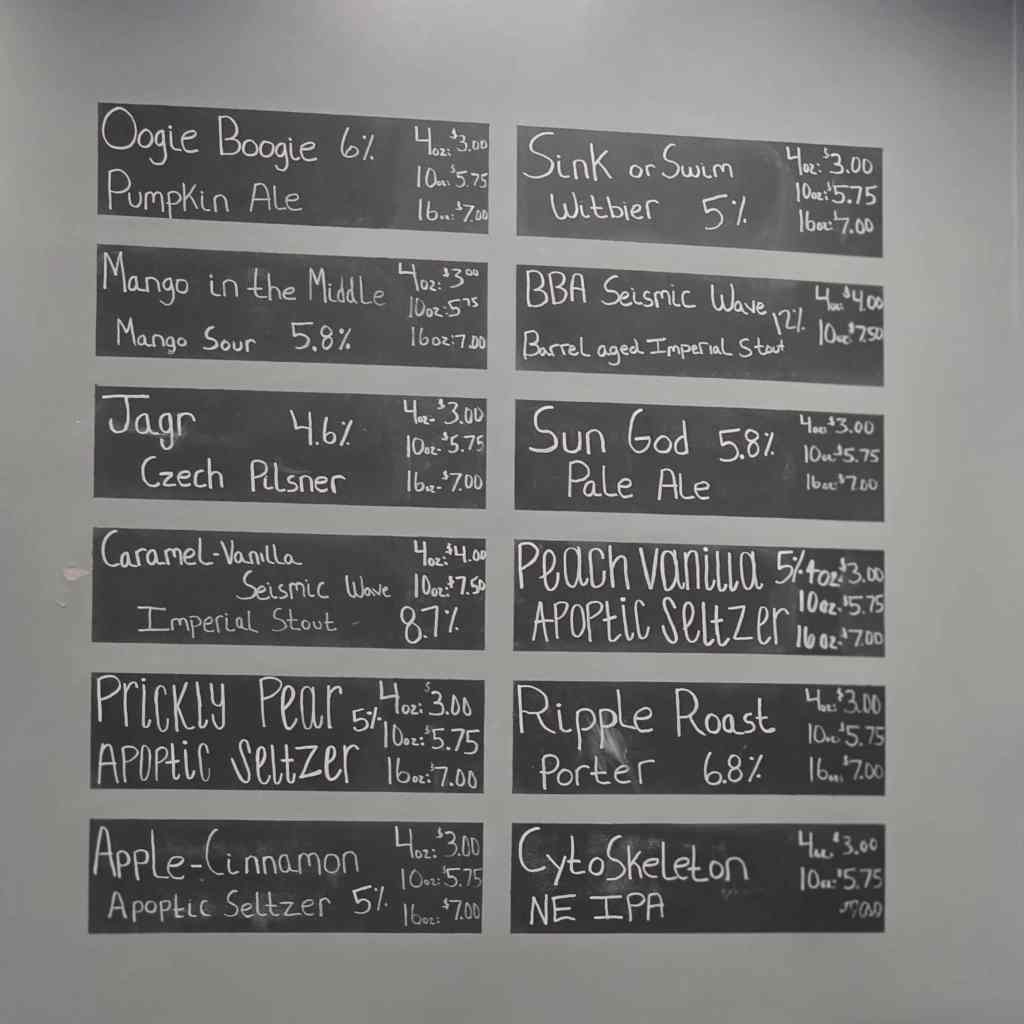 Oogie Boogie 6%
Pumpkin Ale
4oz: $3.00
10oz: $5.75
16oz: $7.00
Sink or Swim
Witbier 5%
4oz: $3.00
10oz: $5.75
16oz: $7.00
Mango in the Middle
Mango Sour 5.8%
4oz: $3.00
10oz: 5.75
16oz: 7.00
BBA Seismic Wave
12%
Barrel aged Imperial Stout
4oz: $4.00
10oz: $7.50
Jagr 4.6%
Czech Pilsner
4oz- $3.00
10oz- $5.75
16oz- $7.00
Sun God 5.8%
Pale Ale
4oz: $3.00
10oz: $5.75
16oz: $7.00
Caramel-Vanilla
Seismic Wave
Imperial Stout 8.7%
4oz: $4.00
10oz: $7.50
Peach Vanilla 5%
Apoptic Seltzer
4oz: $3.00
10oz: $5.75
16oz: $7.00
Prickly Pear 5%
Apoptic Seltzer
4oz: $3.00
10oz: $5.75
16oz: $7.00
Ripple Roast
Porter 6.8%
4oz: $3.00
10oz: $5.75
16oz: $7.00
Apple-Cinnamon
Apoptic Seltzer 5%
4oz: $3.00
10oz: $5.75
16oz: $7.00
CytoSkeleton
NE IPA
4oz: $3.00
10oz: $5.75